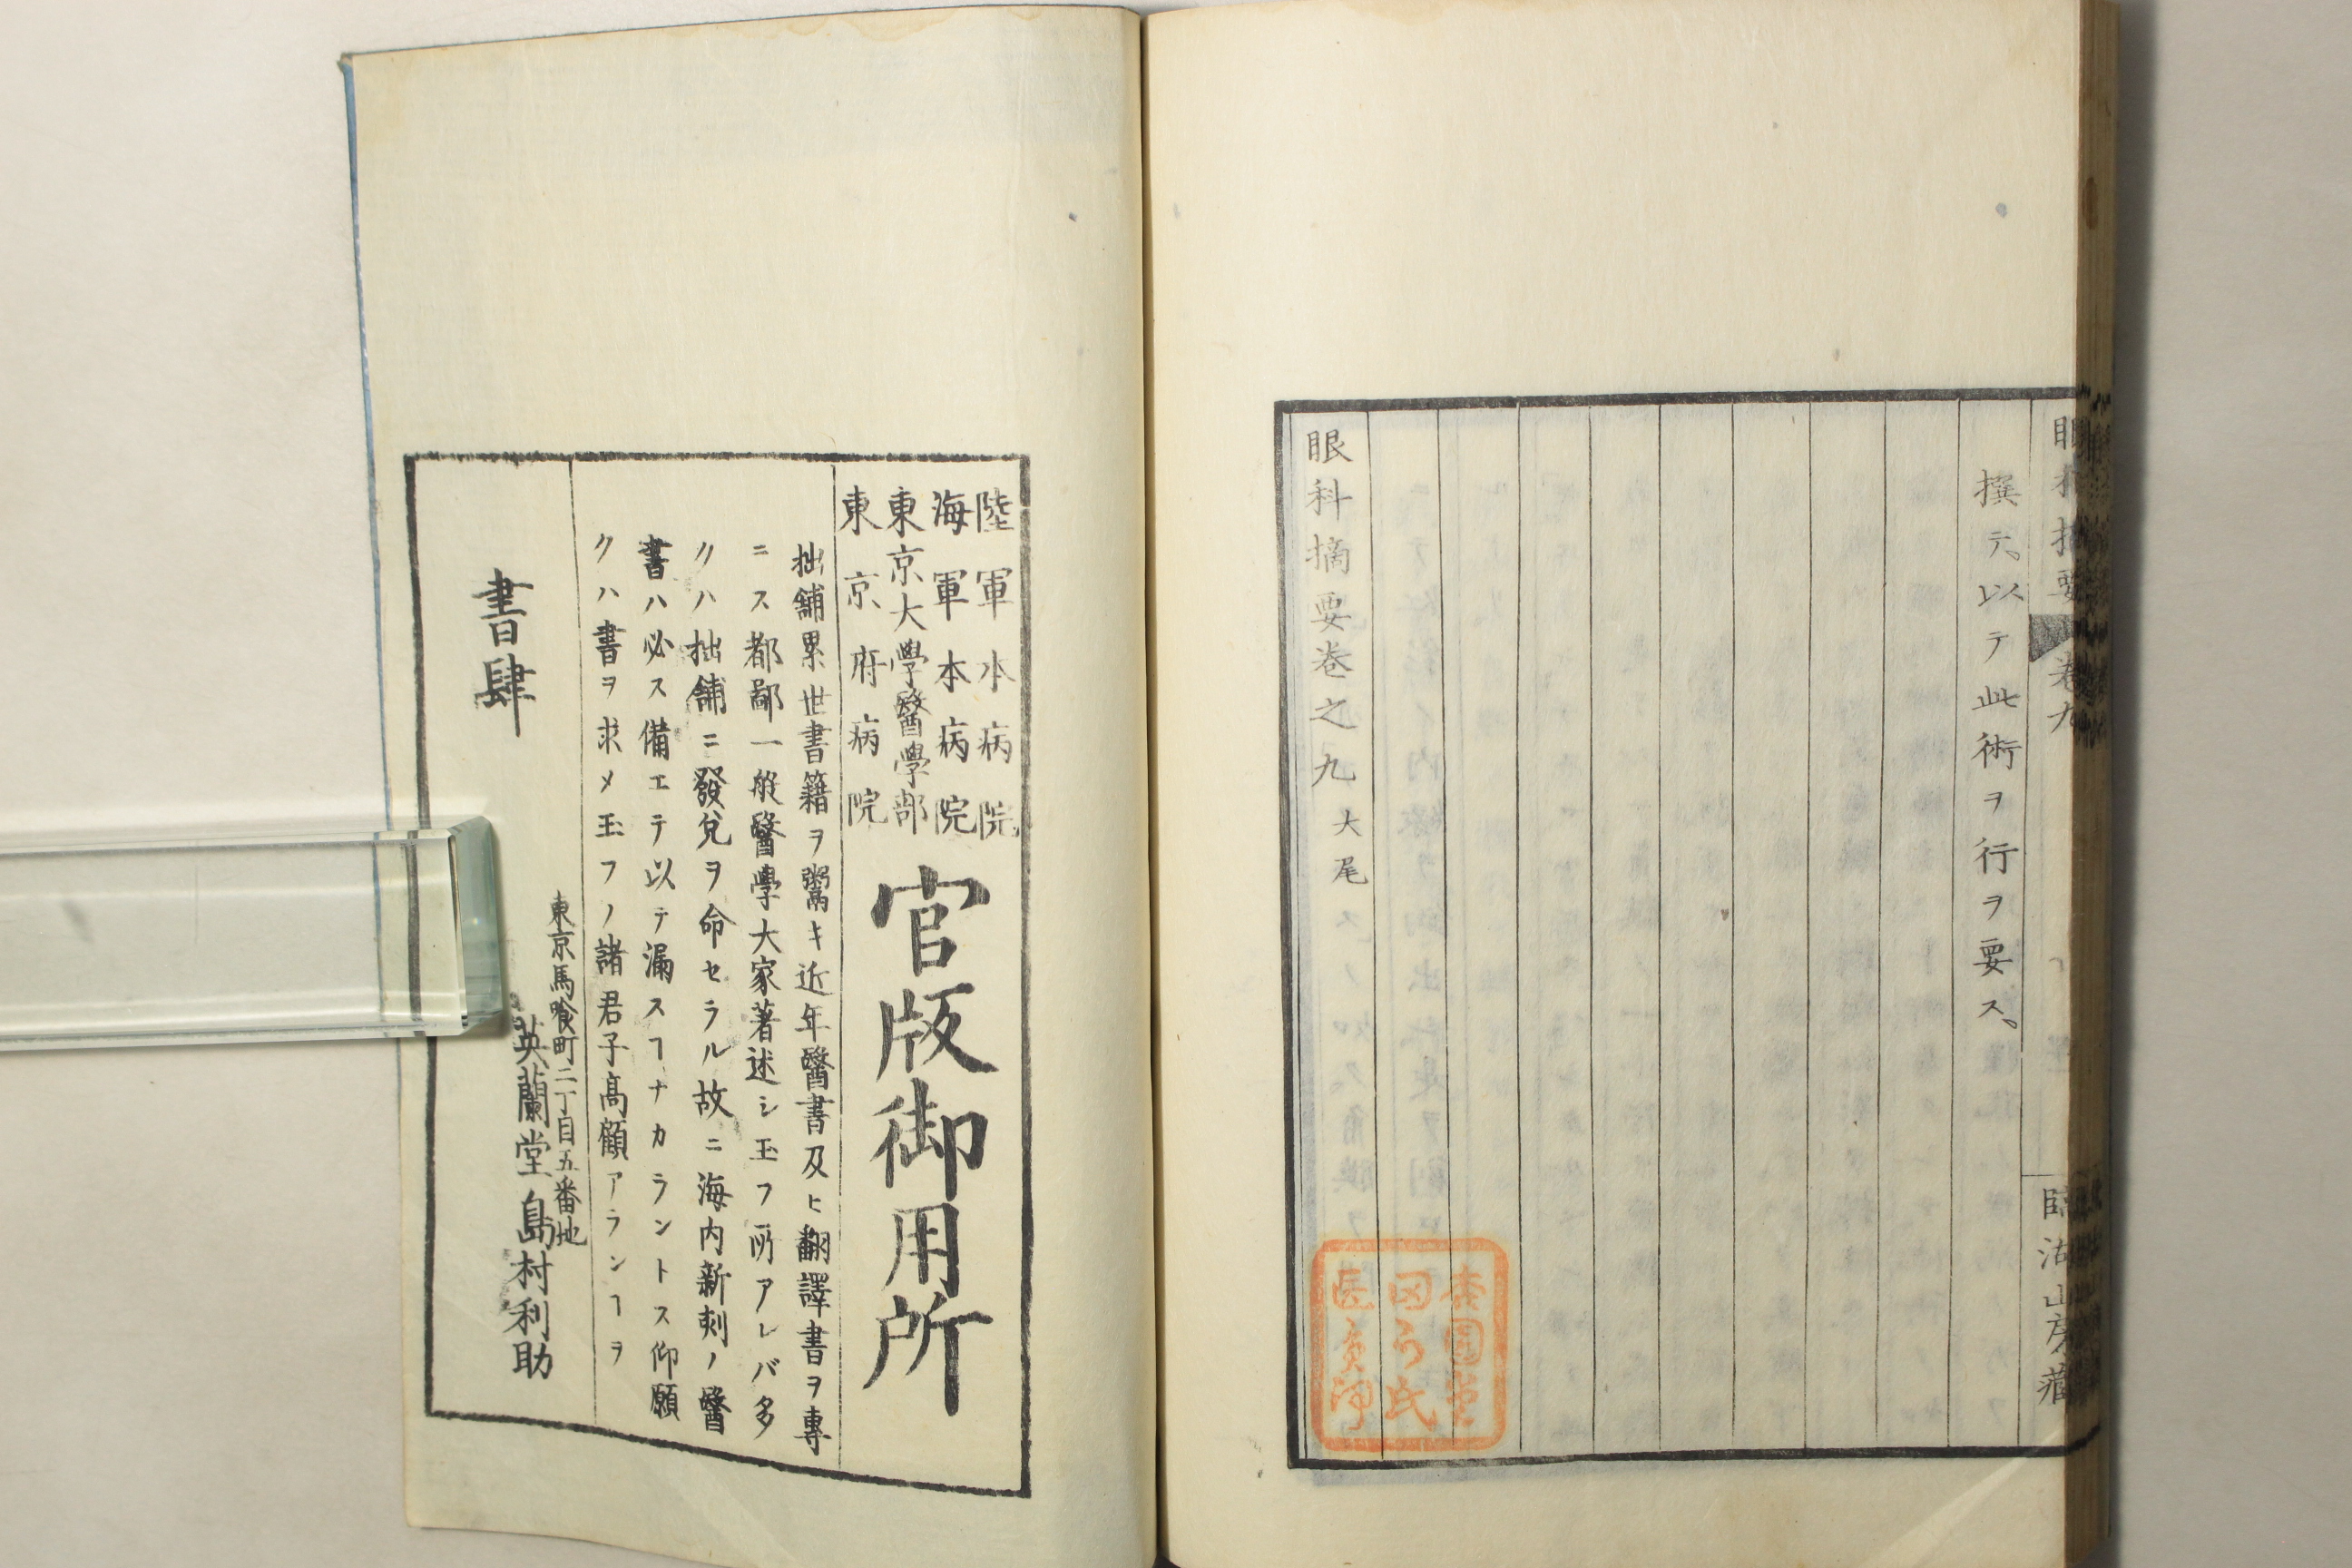 眼科摘要
卷九
臨湖山房藏
撰テ、以テ此術ヲ行ヲ要ス、
眼科摘要卷之九大尾
陸軍本病院
海軍本病院
東京大學醫學部
東京府病院
官版御用所
拙舖累世書籍ヲ鬻キ近年醫書及ヒ翻譯書ヲ專
ニス都鄙一般醫學大家著述シ玉フ所アレバ多
クハ拙舖ニ發兌ヲ命セラル故ニ海内新刻ノ醫
書ハ必ス備エテ以テ漏スヿナカラントス仰願
クハ書ヲ求メ玉フノ諸君子高顧アランヿヲ
東京馬喰町二丁目五番地
書肆
英蘭堂島村利助